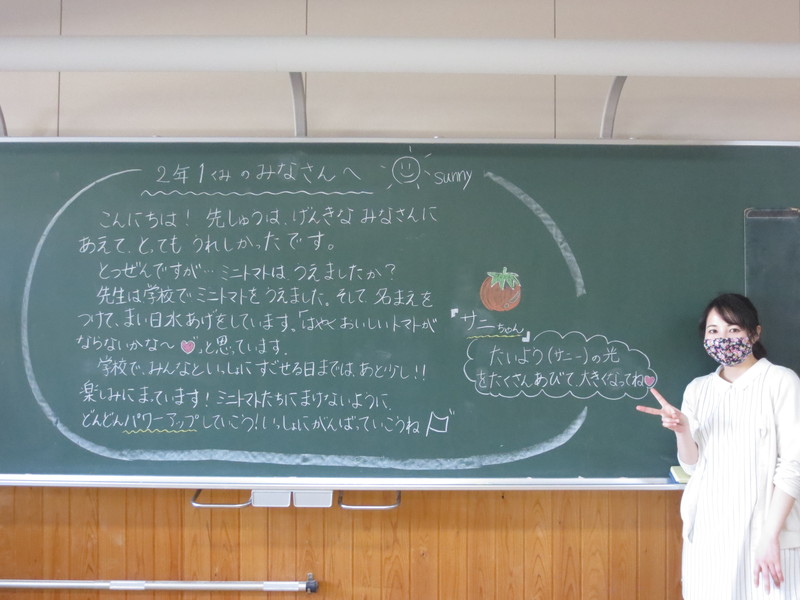 2年1くみのみなさんへ
sunny
こんにちは！先しゅうは、げんきなみなさんに
あえて、とってもうれしかったです。
とつぜんですが…ミニトマトはうえましたか？
先生は学校でミニトマトをうえました。そして、名まえを
つけて、まい日水あげをしています。「はやくおいしいトマトが
ならないかな〜♥」と思っています。
学校で、みんなといっしょにすごせる日までは、あと少し！！
楽しみにまっています！ミニトマトたちにまけないように、
どんどんパワーアップしていこう！いっしょにがんばっていこうね
『サニーちゃん』
たいよう(サニー)の光
をたくさんあびて、大きくなってね♥